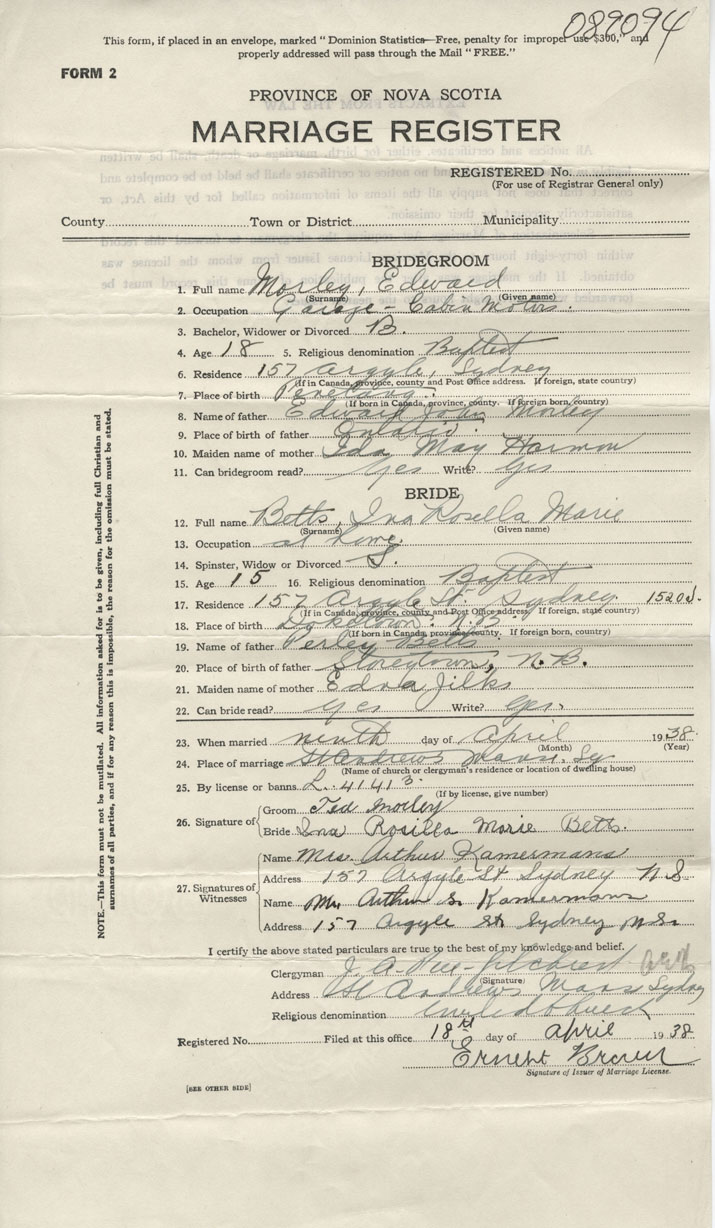 089094
This form, if placed in an envelope, marked " Dominion Statistics—Free, penalty for improper use $300," and
properly addressed will pass through the Mail " FREE."
FORM 2
PROVINCE OF NOVA SCOTIA
MARRIAGE REGISTER
REGISTERED No.
(For use of Registrar General only)
County Town or District Municipality
BRIDEGROOM
1. Full name Morley, Edward
(Surname) (Given name)
2. Occupation Garage - Cabin Motors.
3. Bachelor, Widower or Divorced B.
4. Age 18 5. Religious denomination Baptist
6. Residence 157 Argyle, Sydney
(If in Canada, province, county and Post Office address. If foreign, state country)
7. Place of birth Penetang.
(If born in Canada, province, county. If foreign born, country)
8. Name of father Edward John Morley
9. Place of birth of father Ontario.
10. Maiden name of mother Ida May Harmon
11. Can bridegroom read? Yes Write? Yes
BRIDE
12. Full name Betts, Ina Rosella Marie
(Surname) (Given name)
13. Occupation at home.
14. Spinster, Widow or Divorced S.
15. Age 15 16. Religious denomination Baptist
17. Residence 157 Argyle St. Sydney
(If in Canada, province, county and Post Office address. If foreign, state country)
18. Place of birth Doketown. N.B.
(If born in Canada, province, county. If foreign born, country)
19. Name of father Perley Betts
20. Place of birth of father Storeytown, N.B.
21. Maiden name of mother Edna Jilks
22. Can bride read? Yes Write? Yes.
23. When married ninth day of April 1938.
(Month) (Year)
24. Place of marriage St Andrews Manse, Sy
(Name of church or clergyman's residence or location of dwelling house)
25. By license or banns L. 41413.
(If by license, give number)
26. Signature of
Groom Ted Morley
Bride Ina Rosilla Marie Betts.
27. Signatures of Witnesses
Name Mrs. Arthur Kamermans
Address 157 Argyle St Sydney N S
Name Mr Arthur S. Kamermans
Address 157 Argyle St Sydney N.S.
I certify the above stated particulars are true to the best of my knowledge and belief.
Clergyman J. A.
(Signature)
Address St Andrews Manse Sydney
Religious denomination United Church
Registered No. Filed at this office 18 day of April 1938.
Ernest Brown
Signature of Issuer of Marriage License.
[SEE OTHER SIDE]
NOTE.—This form must not be mutilated. All information asked for is to be given, including full Christian and
surnames of all parties, and if for any reason this is impossible, the reason for the omission must be stated.